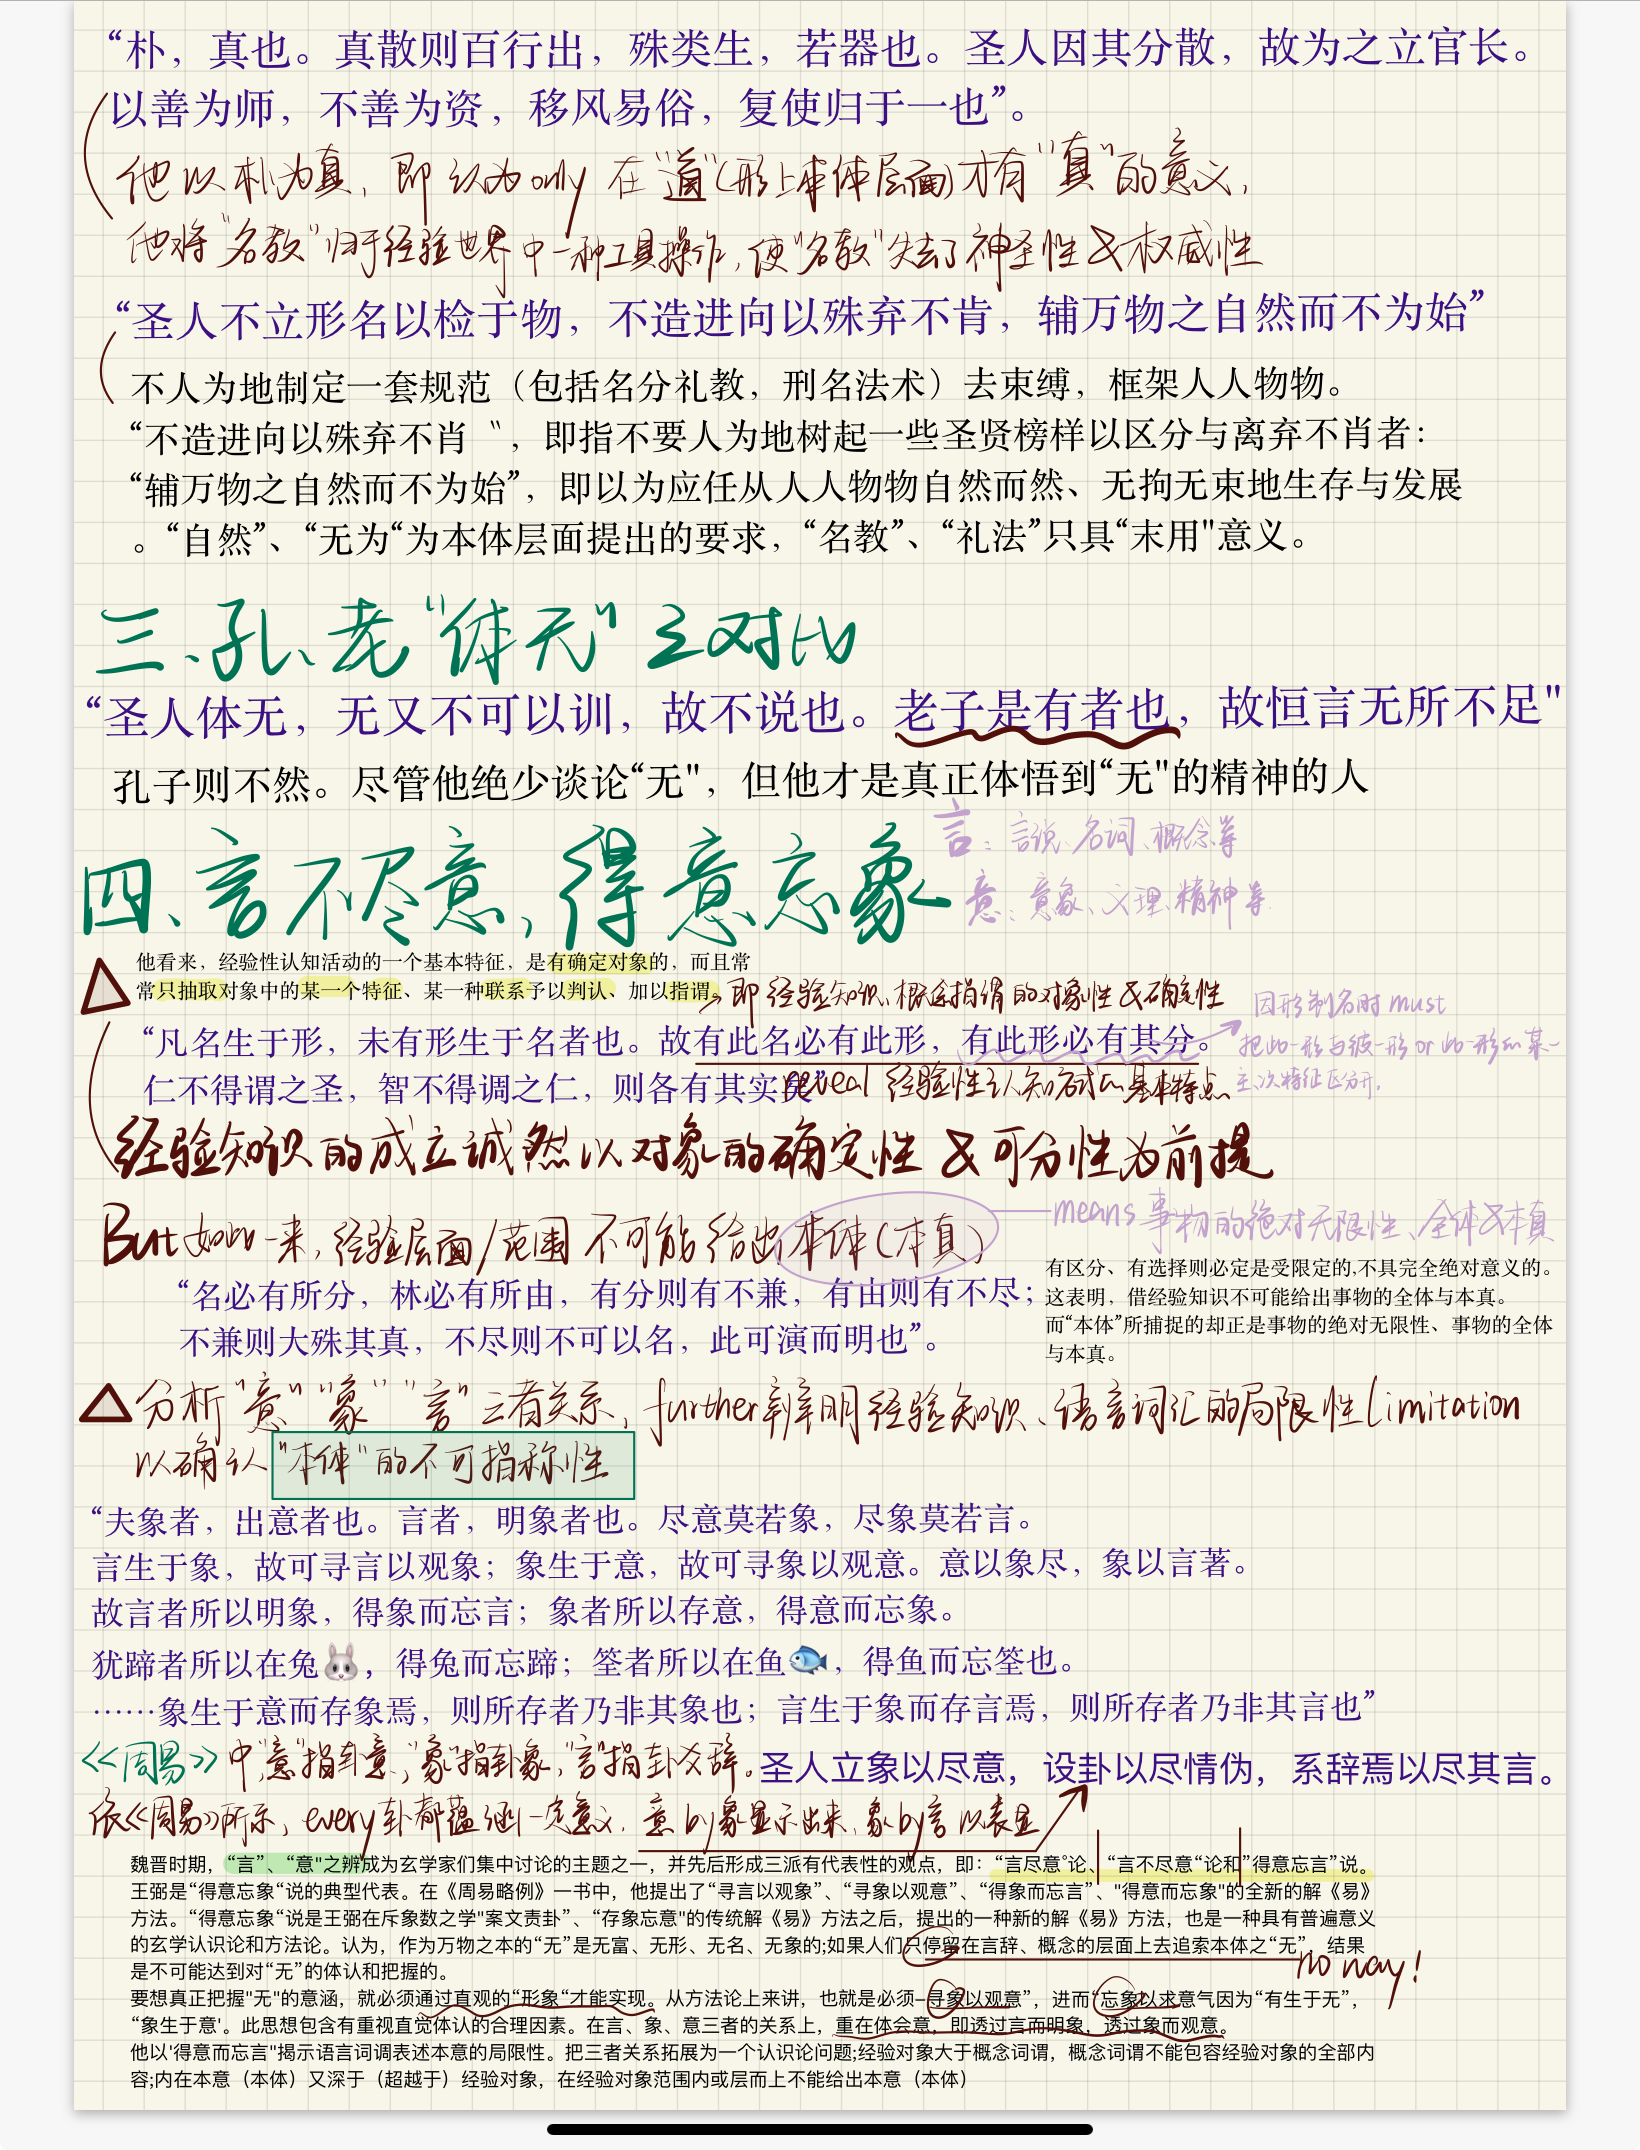 “朴，真也。真散则百行出，殊类生，若器也。圣人因其分散，故为之立官长。
以善为师，不善为资，移风易俗，复使归于一也”。
他以朴为真，即认为only 在“道”(形上本体层面)才有“真”的意义，
他将“名教”归于经验世界中一种工具操作，使“名教”失去了神圣性&权威性
“圣人不立形名以检于物，不造进向以殊弃不肯，辅万物之自然而不为始”
不人为地制定一套规范（包括名分礼教，刑名法术）去束缚，框架人人物物。
“不造进向以殊弃不肖〝，即指不要人为地树起一些圣贤榜样以区分与离弃不肖者：
“辅万物之自然而不为始”，即以为应任从人人物物自然而然、无拘无束地生存与发展
。“自然”、“无为“为本体层面提出的要求，“名教”、“礼法”只具“末用"意义。
三、孔、老“体无”之对比
“圣人体无，无又不可以训，故不说也。老子是有者也，故恒言无所不足"
孔子则不然。尽管他绝少谈论“无"，但他才是真正体悟到“无"的精神的人
四、言不尽意，得意忘象
言：言说、名词、概念等
意：意象、义理、精神等
他看来，经验性认知活动的一个基本特征，是有确定对象的，而且常
常只抽取对象中的某一个特征、某一种联系予以判认、加以指谓。
即经验知识、概念指谓的对象性&确定性
“凡名生于形，未有形生于名者也。故有此名必有此形，有此形必有其分。
因形制名时must
把此一形与彼一形or此一形的某一
主、次特征区分开.
仁不得谓之圣，智不得调之仁，则各有其实矣”
reveal 经验性认知活动的基本特点
经验知识的成立诚然以对象的确定性&可分性为前提
But如此一来，经验层面/范围 不可能给出本体(本真)
means事物的绝对无限性、全体&本真
有区分、有选择则必定是受限定的,不具完全绝对意义的。
这表明，借经验知识不可能给出事物的全体与本真。
而“本体”所捕捉的却正是事物的绝对无限性、事物的全体
与本真。
“名必有所分，林必有所由，有分则有不兼，有由则有不尽；
不兼则大殊其真，不尽则不可以名，此可演而明也”。
分析“意”“象”“言”三者关系，further辨明经验知识、语言词汇的局限性limitation
以确认“本体”的不可指称性
“夫象者，出意者也。言者，明象者也。尽意莫若象，尽象莫若言。
言生于象，故可寻言以观象；象生于意，故可寻象以观意。意以象尽，象以言著。
故言者所以明象，得象而忘言；象者所以存意，得意而忘象。
犹蹄者所以在兔🐰，得兔而忘蹄；筌者所以在鱼🐟，得鱼而忘筌也。
……象生于意而存象焉，则所存者乃非其象也；言生于象而存言焉，则所存者乃非其言也”
《周易》中，“意”指卦意，“象”指卦象，“言”指卦爻辞。圣人立象以尽意，设卦以尽情伪，系辞焉以尽其言。
依《周易》所示，every卦都蕴涵一定意义，意by象显示出来，象by言以表显
魏晋时期，“言”、“意"之辨成为玄学家们集中讨论的主题之一，并先后形成三派有代表性的观点，即：“言尽意°论、“言不尽意“论和”得意忘言”说。
王弼是“得意忘象“说的典型代表。在《周易略例》一书中，他提出了“寻言以观象”、“寻象以观意”、“得象而忘言”、"得意而忘象"的全新的解《易》
方法。“得意忘象“说是王弼在斥象数之学"案文责卦”、“存象忘意"的传统解《易》方法之后，提出的一种新的解《易》方法，也是一种具有普遍意义
的玄学认识论和方法论。认为，作为万物之本的“无”是无富、无形、无名、无象的;如果人们只停留在言辞、概念的层面上去追索本体之“无”，结果
no way!
是不可能达到对“无”的体认和把握的。
要想真正把握"无"的意涵，就必须通过直观的“形象“才能实现。从方法论上来讲，也就是必须–寻象以观意”，进而“忘象以求意气因为“有生于无”，
“象生于意'。此思想包含有重视直觉体认的合理因素。在言、象、意三者的关系上，重在体会意，即透过言而明象，透过象而观意。
他以'得意而忘言"揭示语言词调表述本意的局限性。把三者关系拓展为一个认识论问题;经验对象大于概念词谓，概念词谓不能包容经验对象的全部内
容;内在本意（本体）又深于（超越于）经验对象，在经验对象范围内或层而上不能给出本意（本体）